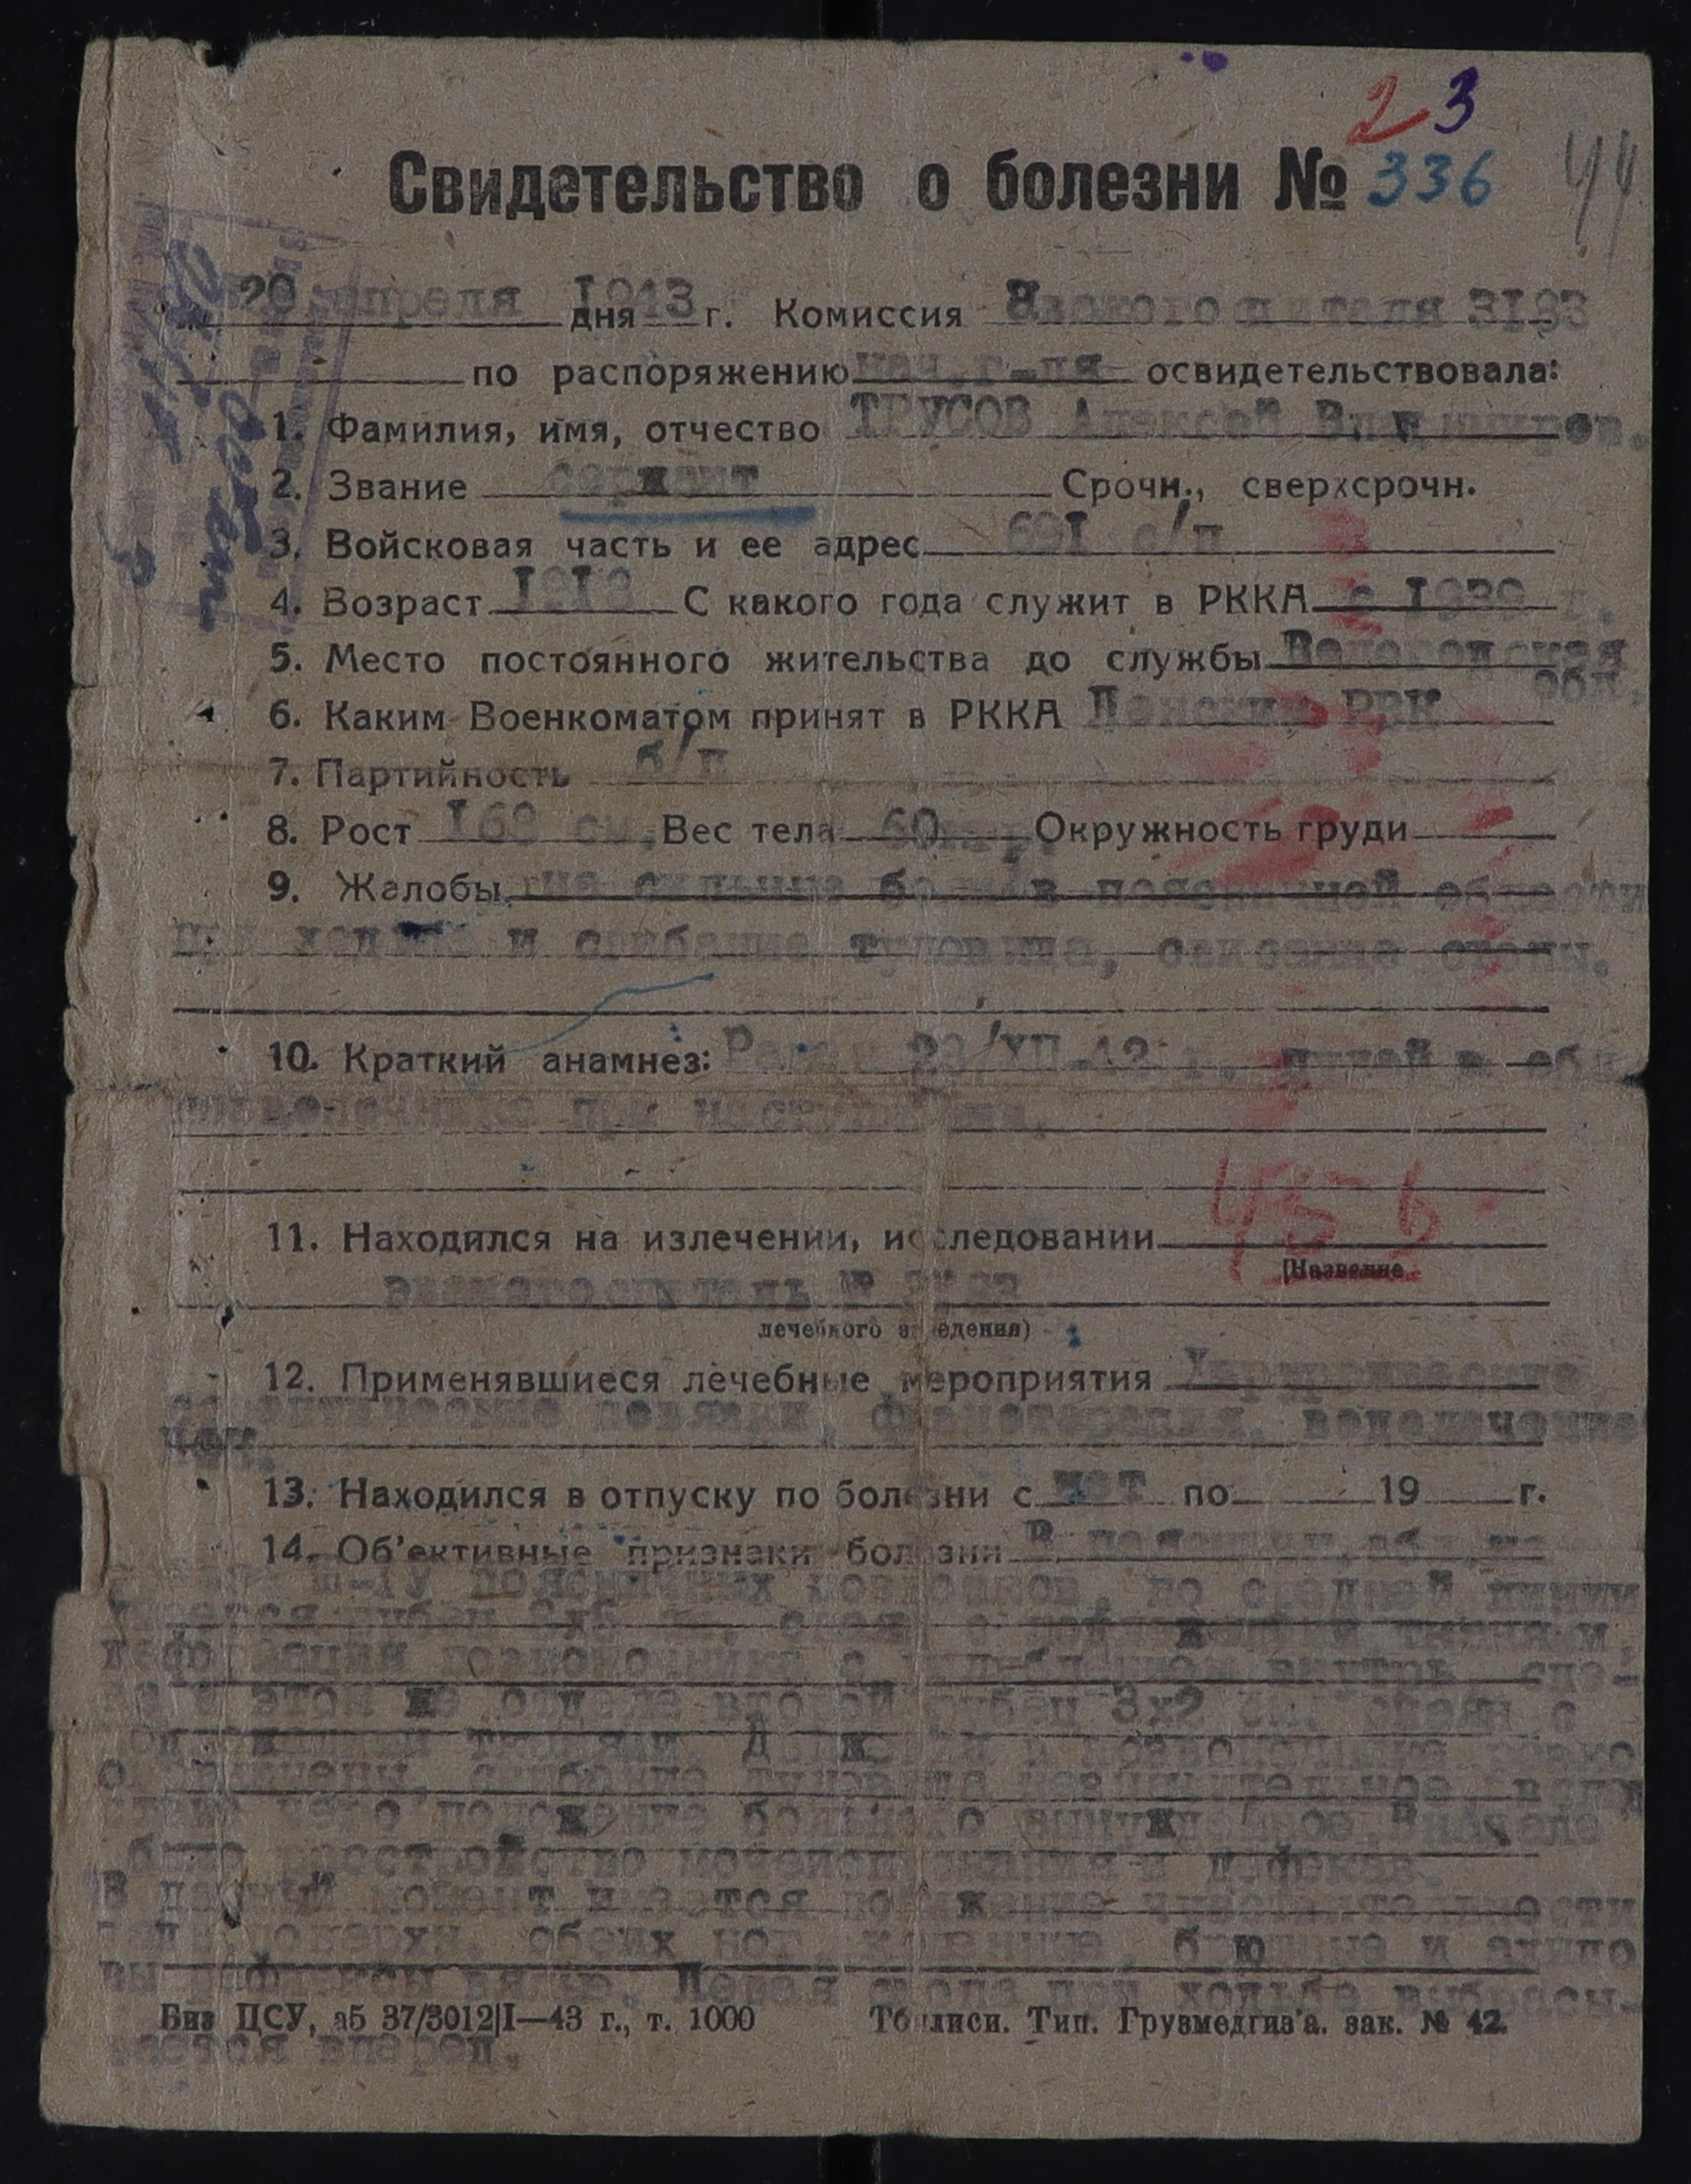 23
Свидетельство о болезни № 336
44
20 апреля дня 1943 г. Комиссия питаля 3193
по распоряжению нач. г-ля освидетельствовала:
1. Фамилия, имя, отчество ТРУСОВ Алексей Владимиров.
2. Звание сержант Срочн., сверхсрочн.
3. Войсковая часть и ее адрес 691 с/п
4. Возраст С какого года служит в РККА с 1939 г.
5. Место постоянного жительства до службы Вологодская
обл.
6. Каким Военкоматом принят в РККА Ленским РВК
7. Партийность б/п
8. Рост Вес тела 60 Окружность груди
9. Жалобы на сильные боли в поясничной области
при ходьбе и сгибание туловища, свисание стопы.
10. Краткий анамнез: Ранен 23/XII-42 г. пулей в обл.
позвоночника при наступлении.
11. Находился на излечении, исследовании
456
(Название
эвакогоспиталь №
лечебного заведения)
12. Применявшиеся лечебные мероприятия Хирургические
повязки, физиотерапия,
13. Находился в отпуску по болезни с нет по 19 г.
14. Об'ективные признаки болезни В пояснич. обл. на
III-IV поясничных позвонков, по средней линии
имеется рубец
деформация позвоночника с углублением внутрь, сле-
ва в этом же отделе второй рубец 3х2 см. спаян с
тканями. Движения в позвоночнике резко
ограничены, сгибание туловища незначительное, ввиду
чего положение больного вынужденное. Вначале
было расстройство мочеиспускания и дефекац.
В данный момент имеется понижение чувствительности
поверхн. обеих ног, брюшные и ахилло
вы рефлексы вялые. Левая стопа при ходьбе выбрасы-
Биз ЦСУ, аб 37/3012|I—43 г., т. 1000 Тбилиси. Тип. Грузмедгиз'а. зак. № 42.
вается вперед.